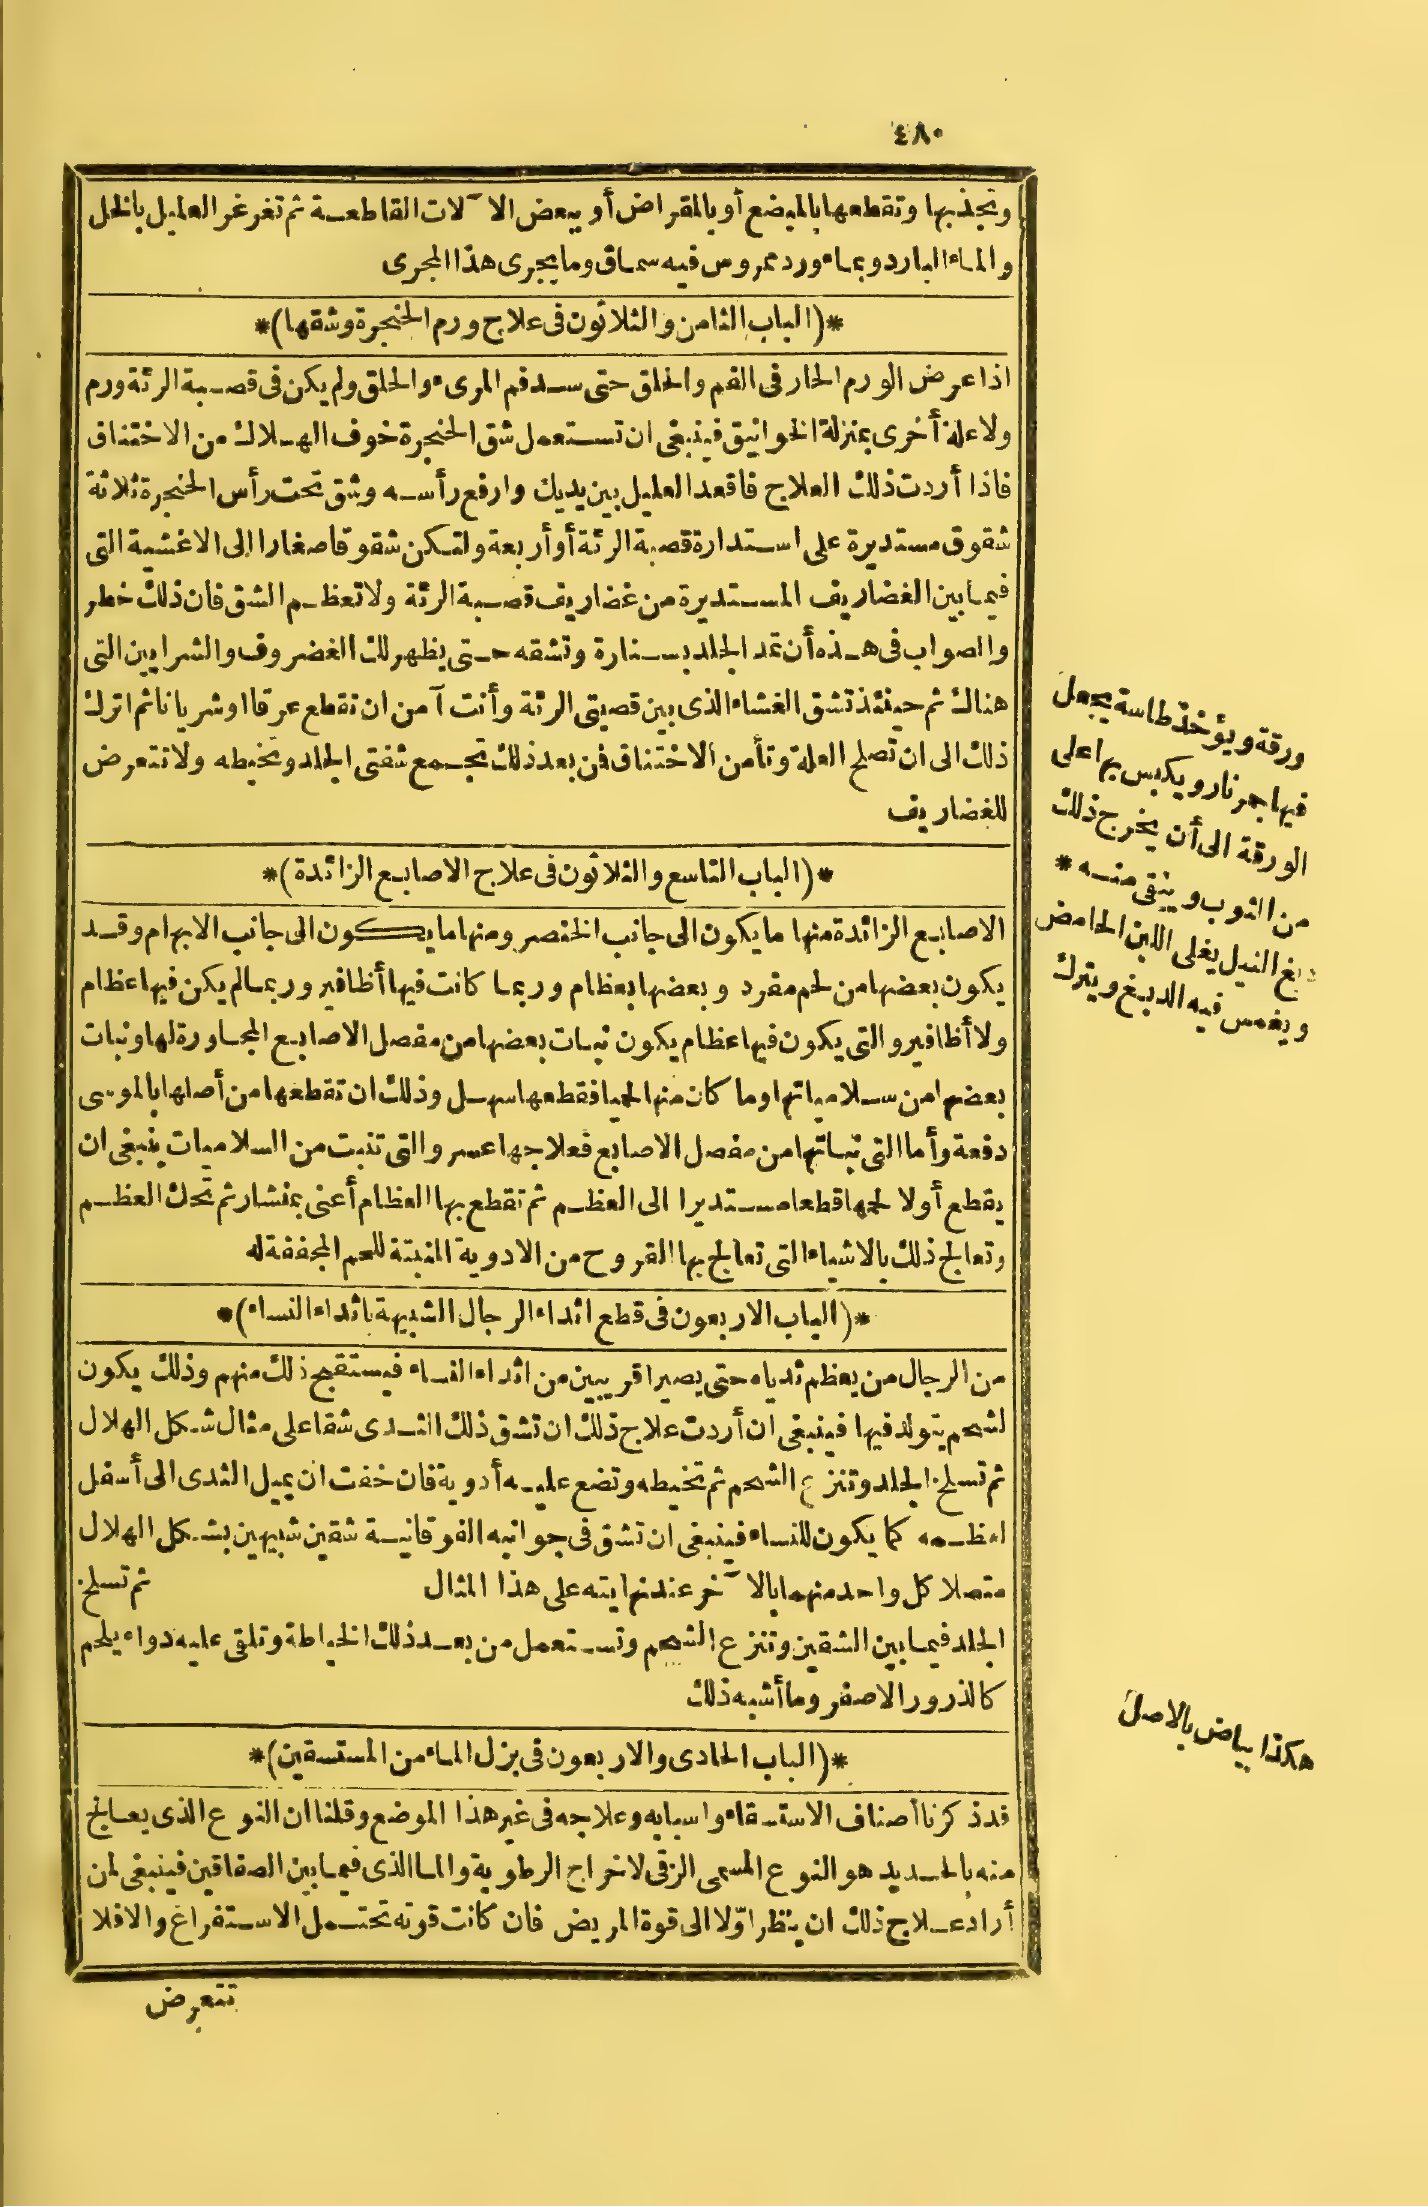 ٤٨٠
وتجذبها وتقطعها بالمبضع أو بالمقراض أو ببعض الآلات القاطعة ثم تغرغر العليل بالخل
والماء البارد وبماء ورد ممروس فيه سماق وما يجرى هذا المجرى
*(الباب الثامن والثلاثون فى علاج ورم الحنجرة وشقها)*
اذا عرض الورم الحار فى الفم والحلق حتى سد فم المرىء والحلق ولم يكن فى قصبة الرئة ورم
ولا علة أخرى بمنزلة الخوانيق فينبغى ان تستعمل شق الحنجرة خوف الهلاك من الاختناق
فاذا أردت ذلك العلاج فاقعد العليل بين يديك وارفع رأسه وشق تحت رأس الحنجرة ثلاثة
شقوق مستديرة على استدارة قصبة الرئة أو أربعة ولتكن شقوقا صغارا الى الاغشية التى
فيما بين الغضاريف المستديرة من غضاريف قصبة الرئة ولا تعظم الشق فان ذلك خطر
والصواب فى هذه أن تمد الجلد بسنارة وتشقه حتى يظهر لك الغضروف والشرايين التى
هناك ثم حينئذ تشق الغشاء الذى بين قصبتى الرئة وأنت آمن ان تقطع عرقا او شريانا ثم اترك
ذلك الى ان تصلح العلة وتأمن الاختناق فن بعد ذلك تجمع شفتى الجلد وتخيطه ولا تتعرض
للغضاريف
*(الباب التاسع والثلاثون فى علاج الاصابع الزائدة)*
الاصابع الزائدة منها ما يكون الى جانب الخنصر ومنها ما يكون الى جانب الابهام وقد
يكون بعضها من لحم مفرد وبعضها بعظام وربما كانت فيها أظافير وربما لم يكن فيها عظام
ولا أظافير والتى يكون فيها عظام يكون نبات بعضها من مفصل الاصابع المجاورة لها ونبات
بعضها من سلامياتها وما كان منها لحميا فقطعها سهل وذلك ان تقطعها من أصلها بالموسى
دفعة وأما التى نباتها من مفصل الاصابع فعلاجها عسر والتى تنبت من السلاميات ينبغى ان
يقطع أولا لحمها قطعا مستديرا الى العظم ثم تقطع بها العظام أعنى بمنشار ثم تحك العظم
وتعالج ذلك بالاشياء التى تعالج بها القروح من الادوية المنبتة للحم المجففة له
*(الباب الاربعون فى قطع اثداء الرجال الشبيهة باثداء النساء)*
من الرجال من يعظم ثدياه حتى يصيرا قريبين من اثداء النساء فيستقبح ذلك منهم وذلك يكون
لشحم يتولد فيها فينبغى ان أردت علاج ذلك ان تشق ذلك الثدى شقا على مثال شكل الهلال
ثم تسلخ الجلد وتنزع الشحم ثم تخيطه وتضع عليه أدوية فان خفت ان يميل الثدى الى أسفل
لعظمه كما يكون للنساء فينبغى ان تشق فى جوانبه الفوقانية شقين شبيهين بشكل الهلال
متصلا كل واحد منهما بالآخر عند نهايته على هذا المثال ثم تسلخ
الجلد فيما بين الشقين وتنزع الشحم وتستعمل من بعد ذلك الخياطة وتلقى عليه دواء يلحم
كالذرور الاصفر وما أشبه ذلك
*(الباب الحادى والاربعون فى بزل الماء من المستسقين)*
قد ذكرنا أصناف الاستسقاء واسبابه وعلاجه فى غير هذا الموضع وقلنا ان النوع الذى يعالج
منه بالحديد هو النوع المسمى الزقى لاخراج الرطوبة والماء الذى فيما بين الصفاقين فينبغى لمن
أراد علاج ذلك ان ينظر اوّلا الى قوة المريض فان كانت قوته تحتمل الاستفراغ والا فلا
تتعرض
ورقة ويؤخذ طاسة يجعل
فيها جمر نار ويكبس بها على
الورقة الى أن يخرج ذلك
من الثوب وينقى منه *
دبغ النيل يغلى اللبن الحامض
ويغمس فيه الدبغ ويترك
هكذا بياض بالاصل